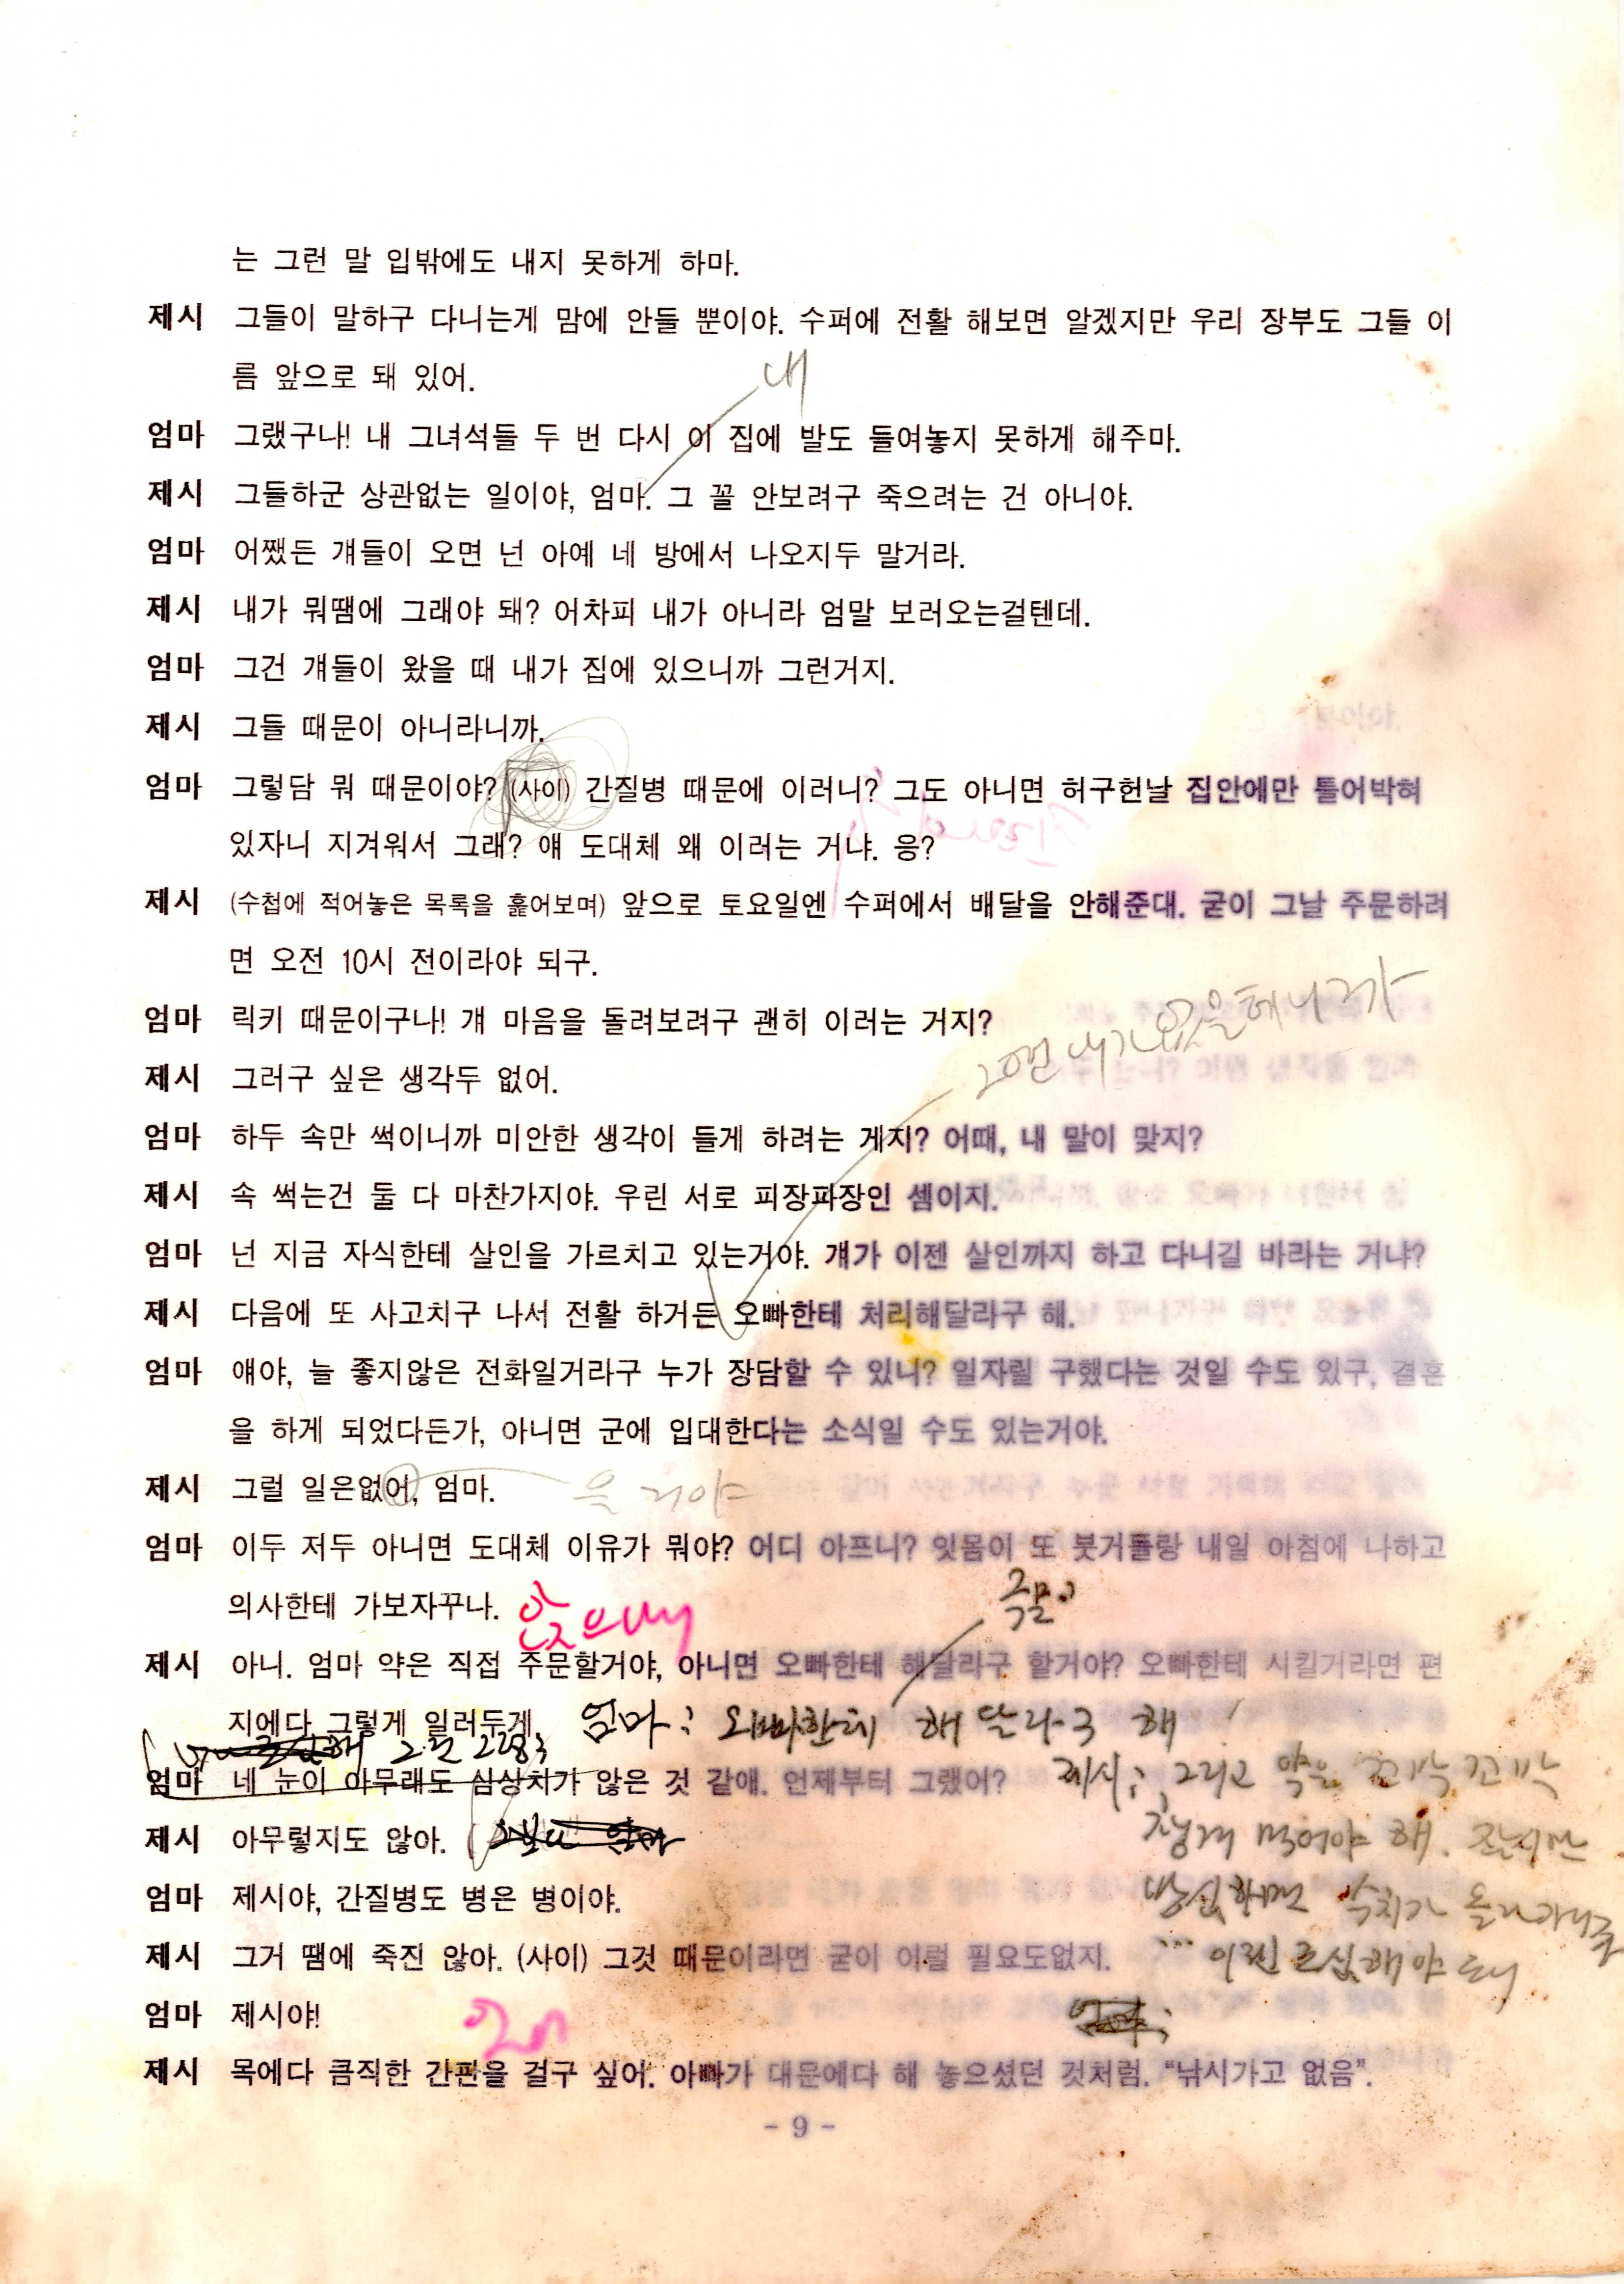 는 그런 말 입밖에도 내지 못하게 하마.
제시 그들이 말하구 다니는게 맘에 안들 뿐이야. 수퍼에 전활 해보면 알겠지만 우리 장부도 그들 이
름 앞으로 돼 있어.
내
엄마 그랬구나! 내 그녀석들 두 번 다시 이 집에 발도 들여놓지 못하게 해주마.
제시 그들하군 상관없는 일이야, 엄마. 그 꼴 안보려구 죽으려는 건 아니야.
엄마 어쨌든 걔들이 오면 넌 아예 네 방에서 나오지두 말거라.
제시 내가 뭐땜에 그래야 돼? 어차피 내가 아니라 엄말 보러오는걸텐데.
엄마 그건 걔들이 왔을 때 내가 집에 있으니까 그런거지.
제시 그들 때문이 아니라니까.
엄마 그렇담 뭐 때문이야? (사이) 간질병 때문에 이러니? 그도 아니면 허구헌날 집안에만 틀어박혀
있자니 지겨워서 그래? 얘 도대체 왜 이러는 거냐. 응?
제시 (수첩에 적어놓은 목록을 훑어보며) 앞으로 토요일엔 수퍼에서 배달을 안해준대. 굳이 그날 주문하려
면 오전 10시 전이라야 되구.
엄마 릭키 때문이구나! 걔 마음을 돌려보려구 괜히 이러는 거지?
내가 없을테니까
제시 그러구 싶은 생각두 없어.
엄마 하두 속만 썩이니까 미안한 생각이 들게 하려는 게지? 어때, 내 말이 맞지?
제시 속 썩는건 둘 다 마찬가지야. 우린 서로 피장파장인 셈이지.
엄마 넌 지금 자식한테 살인을 가르치고 있는거야. 걔가 이젠 살인까지 하고 다니길 바라는 거냐?
제시 다음에 또 사고치구 나서 전활 하거든 오빠한테 처리해달라구 해.
엄마 얘야, 늘 좋지않은 전화일거라구 누가 장담할 수 있니? 일자릴 구했다는 것일 수도 있구, 결혼
을 하게 되었다든가, 아니면 군에 입대한다는 소식일 수도 있는거야.
제시 그럴 일은없어, 엄마. 을 거야
엄마 이두 저두 아니면 도대체 이유가 뭐야? 어디 아프니? 잇몸이 또 붓거들랑 내일 아침에 나하고
의사한테 가보자꾸나. 앉으며
제시 아니. 엄마 약은 직접 주문할거야, 아니면 오빠한테 해달라구 할거야? 오빠한테 시킬거라면 편
지에다 그렇게 일러두게. 엄마: 오빠한테 해 달라구 해
엄마 네 눈이 아무래도 심상치가 않은 것 같애. 언제부터 그랬어? 제시: 그리고 약은 꼬박 꼬박
제시 아무렇지도 않아. 챙겨 먹어야 해.
엄마 제시야, 간질병도 병은 병이야. 방심하면 수치가 올라가니까
제시 그거 땜에 죽진 않아. (사이) 그것 때문이라면 굳이 이럴 필요도없지. 조심해야 돼
엄마 제시야!
제시 목에다 큼직한 간판을 걸구 싶어. 아빠가 대문에다 해 놓으셨던 것처럼. “낚시가고 없음”.
- 9 -